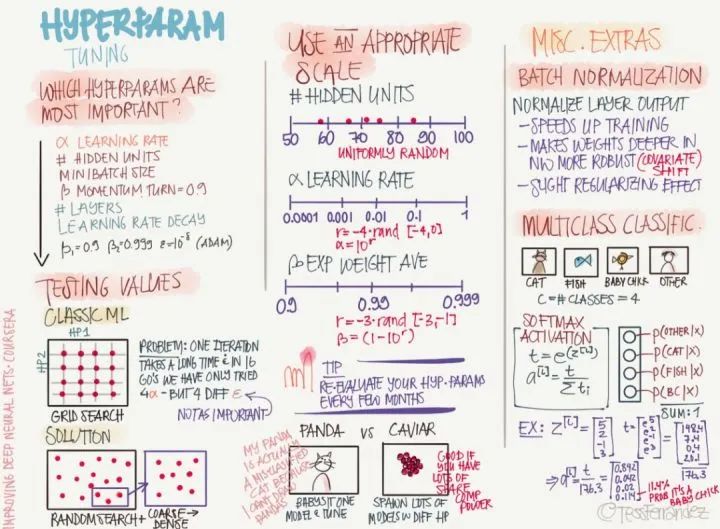 HYPERPARAM
TUNING
WHICH HYPERPARAMS ARE
MOST IMPORTANT?
α LEARNING RATE
# HIDDEN UNITS
MINIBATCH SIZE
β MOMENTUM TURN = 0.9
# LAYERS
LEARNING RATE DECAY
β₁=0.9 β₂=0.999 ε=10⁻⁸ (ADAM)
TESTING VALUES
CLASSIC ML
HP1
HP2
PROBLEM: ONE ITERATION
TAKES A LONG TIME & IN 16
GO'S WE HAVE ONLY TRIED
4α - BUT 4 DIFF ε
NOT AS IMPORTANT
GRID SEARCH
SOLUTION
RANDOM SEARCH + COARSE→
DENSE
IMPROVING DEEP NEURAL NETS · COURSERA
USE AN APPROPRIATE
SCALE
# HIDDEN UNITS
50 60 70 80 90 100
UNIFORMLY RANDOM
α LEARNING RATE
0.0001 0.001 0.01 0.1 1
r = -4 · rand [-4,0]
α = 10ʳ
β EXP WEIGHT AVE
0.9 0.99 0.999
r = -3 · rand [-3,-1]
β = (1-10ʳ)
TIP
RE-EVALUATE YOUR HYP. PARAMS
EVERY FEW MONTHS
PANDA VS CAVIAR
MY PANDA
IS ACTUALLY
A MISCLASSIFIED
CAT BECAUSE
I CAN'T DRAW
PANDAS
GOOD IF
YOU HAVE
LOTS OF
SPARE
COMP
POWER
BABYSIT ONE
MODEL & TUNE
SPAWN LOTS OF
MODELS W DIFF HP
MISC. EXTRAS
BATCH NORMALIZATION
NORMALIZE LAYER OUTPUT
- SPEEDS UP TRAINING
- MAKES WEIGHTS DEEPER IN
NW MORE ROBUST (COVARIATE)
SHIFT
- SLIGHT REGULARIZING EFFECT
MULTICLASS CLASSIFIC.
CAT FISH BABY CHICK OTHER
C = # CLASSES = 4
SOFTMAX
ACTIVATION
t = e^(z^[L])
a^[L] = t / Σtᵢ
P(OTHER|X)
P(CAT|X)
P(FISH|X)
P(BC|X)
SUM: 1
EX: Z^[L] = [5 2 -1 3] t = [e⁵ e² e⁻¹ e³] = [148.4 7.4 0.4 20.1]
176.3
⇒ a^[L] = t / 176.3 = [0.842 0.042 0.02 0.114] 11.4%
PROB IT'S A
BABY CHICK
@TessFerrandez